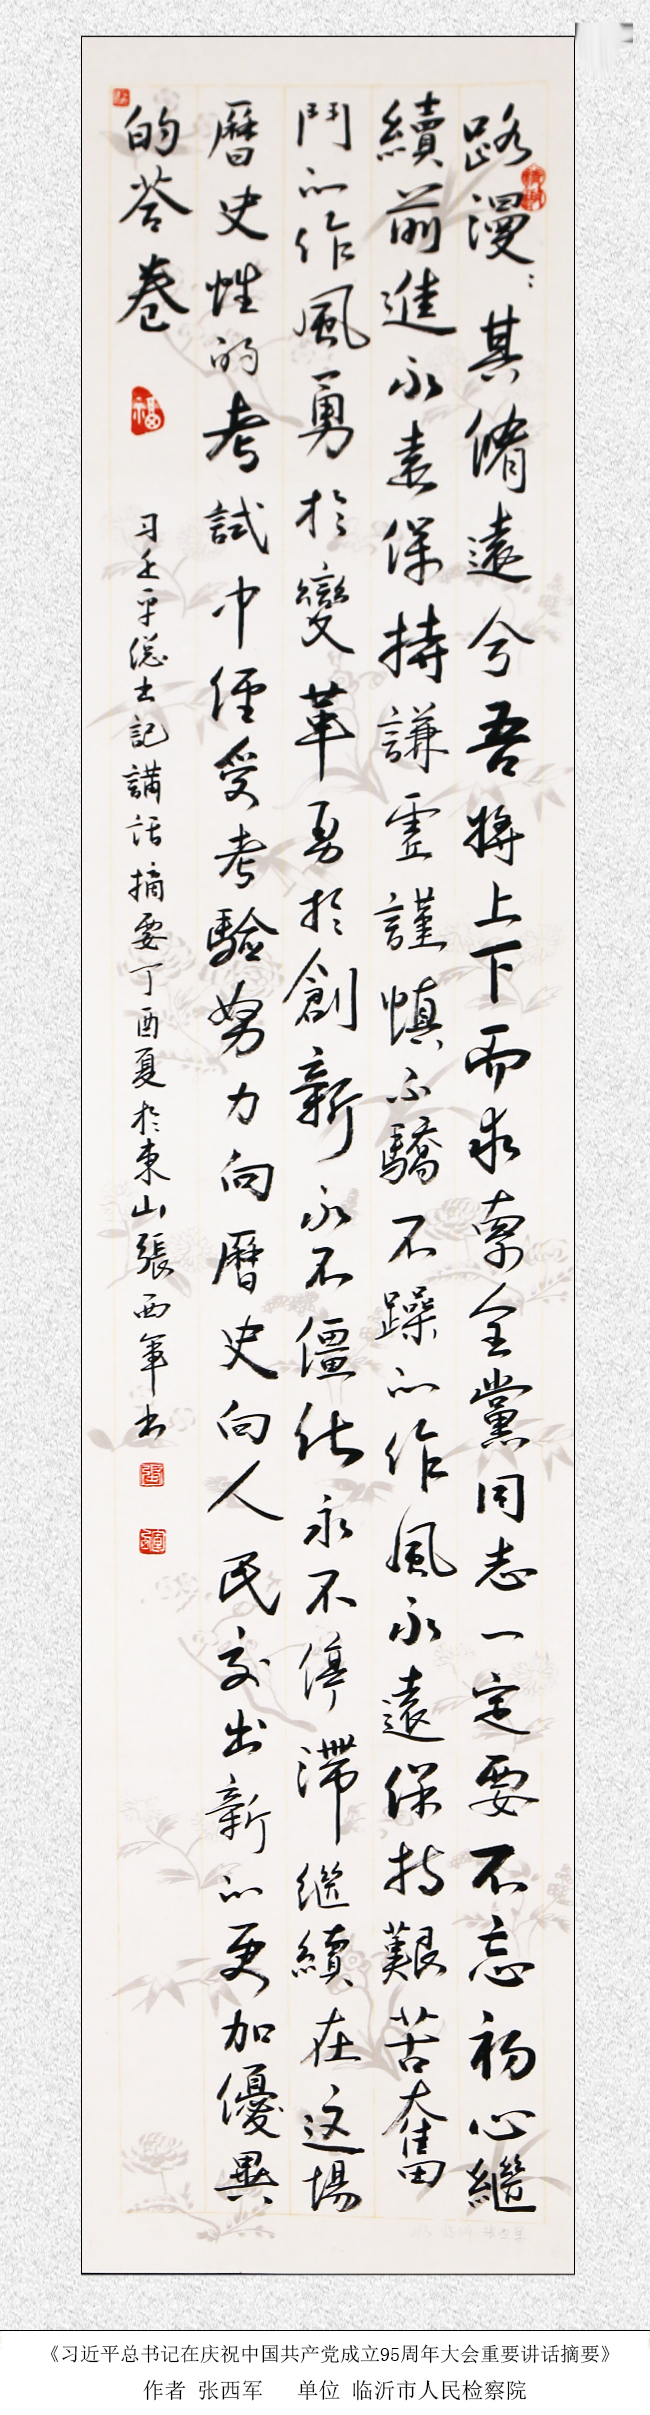 路漫：其脩遠兮吾將上下而求索全黨同志一定要不忘初心繼
續前進永遠保持謙虛謹慎不驕不躁的作風永遠保持艱苦奮
鬥的作風勇於變革勇於創新永不僵化永不停滯繼續在这場
曆史性的考試中經受考驗努力向曆史向人民交出新的更加優異
的荅卷
福
习近平總书記講話摘要丁酉夏於東山張西軍书
《习近平总书记在庆祝中国共产党成立95周年大会重要讲话摘要》
作者 张西军 单位 临沂市人民检察院